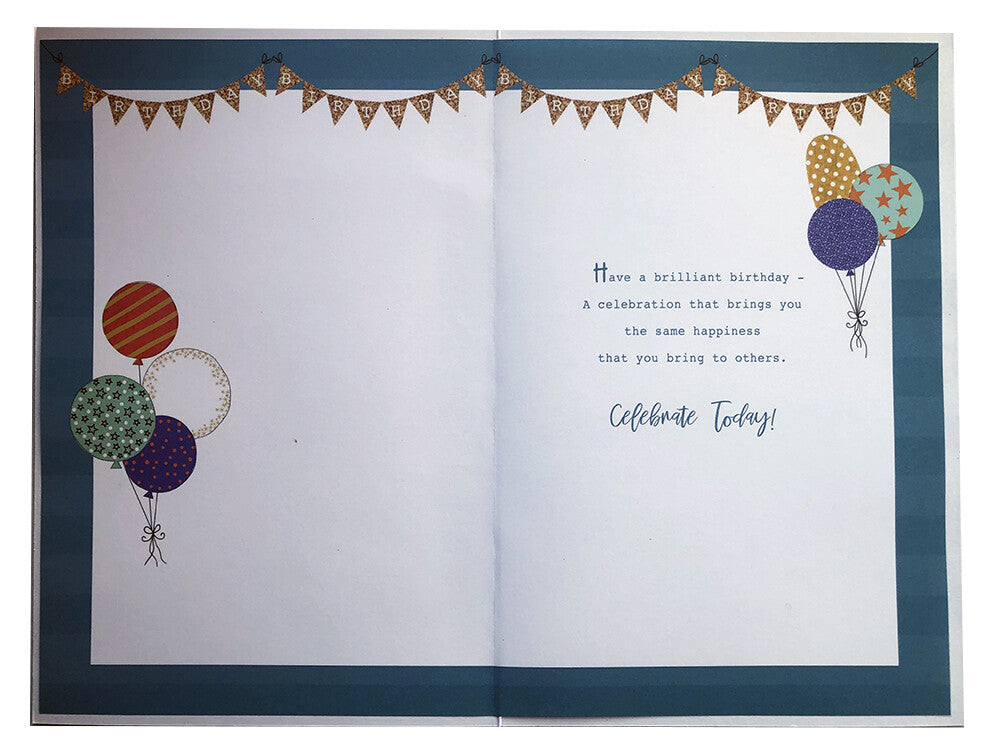 BIRTHDAY BIRTHDAY BIRTHDAY BIRTHDAY
Have a brilliant birthday –
A celebration that brings you
the same happiness
that you bring to others.
Celebrate Today!